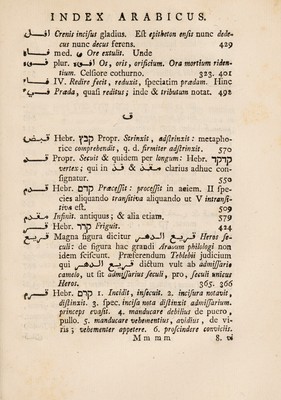 INDEX ARABICUS.
Crenis incisus gladius. Est epitheton ensis nunc dede-
cus nunc decus ferens. 429
med. و Ore extulit. Unde
plur. Os, oris, orificium. Ora mortium riden-
tium. Celsiore cothurno. 323. 401
فاء IV. Redire fecit, reduxit, speciatim prædam. Hinc
Præda, quasi reditus; inde & tributum notat. 492
ق
قبض Hebr. קבץ Propr. Strinxit, adstrinxit: metapho-
rice comprehendit, q. d. firmiter adstrinxit. 570
قد Propr. Secuit & quidem per longum: Hebr. קדקד
vertex; qui in قد & clarius adhuc con-
signatur. 550
قدم Hebr. קדם Præcessit: processit in aciem. II spe-
cies aliquando transitiva aliquando ut V intransi-
tiva est. 509
Infinit. antiquus; & alia etiam. 579
قر Hebr. קרר Friguit. 424
قريع Magna figura dicitur قريع الدهر Heros se-
culi: de figura hac grandi Arabum philologi non
idem sciscunt. Præferendum Teblebii judicium
qui قريع الدهر dictum vult ab admissario
camelo, ut sit admissarius seculi, pro, seculi unicus
Heros. 365. 366
قرم Hebr. קרם 1. Incidit, insecuit. 2. incisura notavit,
distinxit. 3. spec. incisa nota distinxit admissarium.
princeps evasit. 4. manducare debilius de puero,
pullo. 5. manducare vehementius, avidius, de vi-
ris; vehementer appetere. 6. proscindere conviciis.
M m m m 8. vi